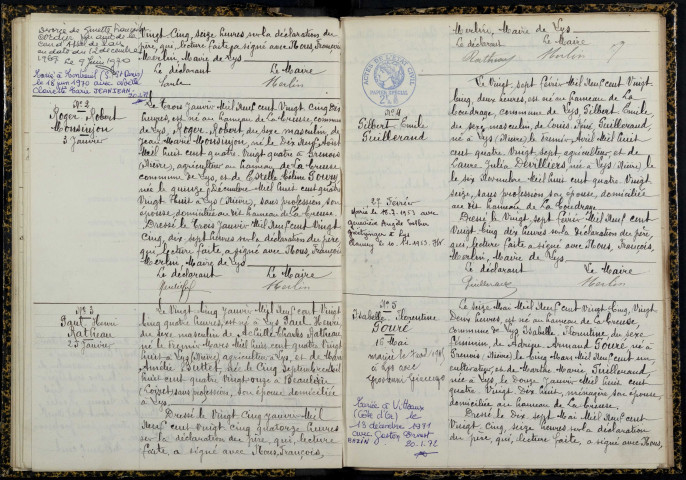 Vingt Cinq, seize heures sur la déclaration du
père, qui, lecture faite, a signé avec Nous, François
Merlin, Maire de Lys
Le déclarant Le Maire
Merlin
divorcé de
par jugt de la
Cour d'Appel de
en date du 12 décembre
1969 Le 9 Juin 1970
le 18 juin 1970 avec
Claire Marie JEANJEAN
N° 2
Roger Robert
Monsinjon
3 Janvier
Le Trois Janvier Mil Neuf cent Vingt Cinq
heures, est né au hameau de La Creuse, commune
de Lys, Roger, Robert, du sexe masculin, de
Jean Marie Monsinjon, né le Dix Neuf Août
Mil huit cent quatre Vingt quatre à Grenois
(Nièvre), agriculteur au hameau de La Creuse
commune de Lys, et de Estelle
née le quinze Décembre Mil huit cent quatre
Vingt huit à Lys (Nièvre), sans profession, son
épouse, domiciliés au dit hameau de La Creuse.
Dressé le Trois Janvier Mil Neuf cent Vingt
Cinq, dix sept heures sur la déclaration du père,
qui, lecture faite, a signé avec Nous, François
Merlin, Maire de Lys
Le déclarant Le Maire
Merlin
N° 3
Paul Henri
Ratheau
25 Janvier
Le Vingt Cinq Janvier Mil Neuf cent Vingt
Cinq quatre heures, est né à Lys Paul Henri,
du sexe masculin, de Achille Charles Ratheau
né le premier Mars Mil huit cent quatre Vingt
huit à Lys (Nièvre) agriculteur à Lys, et de Marie
Amélie Burtet, née le Cinq Septembre Mil
huit cent quatre Vingt onze à
(Loiret) sans profession, son épouse domiciliée
à Lys
Dressé le Vingt Cinq Janvier Mil
Neuf cent Vingt Cinq quatorze heures
sur la déclaration du père, qui, lecture
faite, a signé avec Nous, François,
Merlin, Maire de Lys
Le déclarant Le Maire
Ratheau Merlin
N° 4
Gilbert Emile
Guillerand
27 Février
Le Vingt sept Février Mil Neuf cent Vingt
Cinq, deux heures, est né au hameau de La
Coudraye, commune de Lys, Gilbert Emile
du sexe masculin, de Louis Guillerand,
né à Lys (Nièvre) le Avril Mil huit
cent quatre Vingt sept, agriculteur, et de
Laure Julia née à Lys (Nièvre) le
six Novembre Mil huit cent quatre Vingt
seize, sans profession, son épouse, domiciliés
au dit hameau de La Coudraye
Dressé le Vingt sept Février Mil Neuf cent
Vingt Cinq, dix heures sur la déclaration du père,
qui, lecture faite, a signé avec Nous, François,
Merlin, Maire de Lys
Le déclarant Le Maire
Guillerand Merlin
N° 5
Isabelle Florentine
Gouré
16 Mai
à Lys avec
Mariée à Vitteaux
(Côte d'Or) le
13 décembre 1971
avec Gaston
20.1.72
Le seize Mai Mil Neuf cent Vingt Cinq, Vingt
Deux heures, est née au hameau de La Creuse,
commune de Lys Isabelle Florentine, du sexe
féminin, de Armand Gouré né à
Grenois (Nièvre) le Cinq Mars Mil Neuf cent un
cultivateur, et de Marthe Marie Guillerand,
née à Lys le Douze Janvier Mil huit cent
quatre Vingt Dix huit, ménagère, son épouse,
domiciliés au hameau de La Creuse.
Dressé le Dix sept Mai Mil Neuf cent
Vingt Cinq, seize heures sur la déclaration
du père, qui, lecture faite, a signé avec Nous,